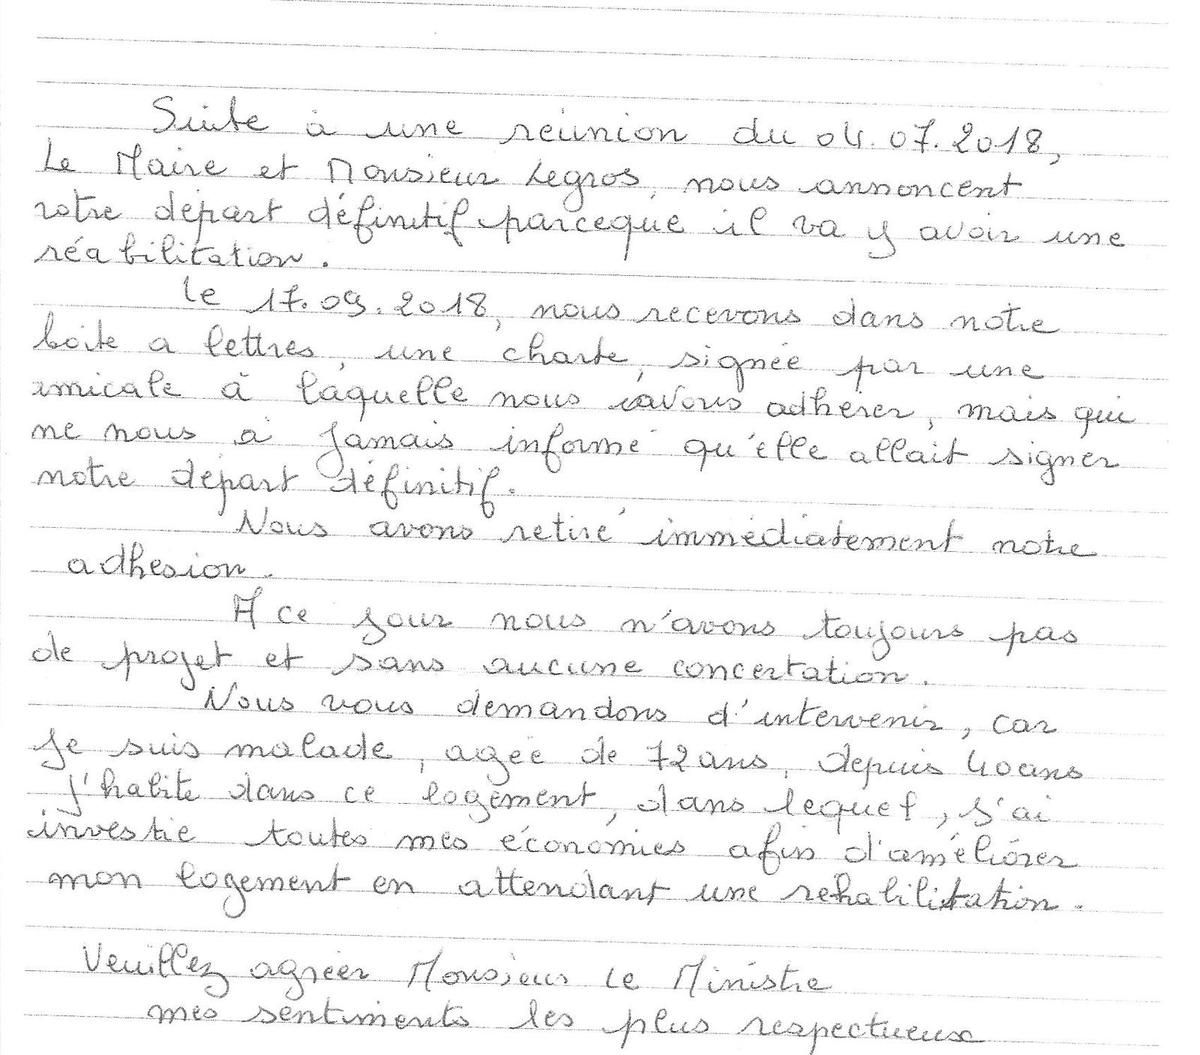 Suite à une réunion du 04.07.2018,
Le Maire et Monsieur Legros, nous annoncent
votre départ définitif parceque il va y avoir une
réabilitation.
Le 17.09.2018, nous recevons dans notre
boite a lettres, une charte, signée par une
amicale à laquelle nous avons adhérer, mais qui
ne nous à jamais informé qu'elle allait signer
notre départ définitif.
Nous avons retiré immédiatement notre
adhesion.
A ce jour nous n'avons toujours pas
de projet et sans aucune concertation.
Nous vous demandons d'intervenir, car
je suis malade, agée de 72 ans, depuis 40 ans
j'habite dans ce logement, dans lequel, j'ai
investie toutes mes économies afin d'améliorer
mon logement en attendant une rehabilitation.
Veuillez agréer Monsieur Le Ministre
mes sentiments les plus respectueux